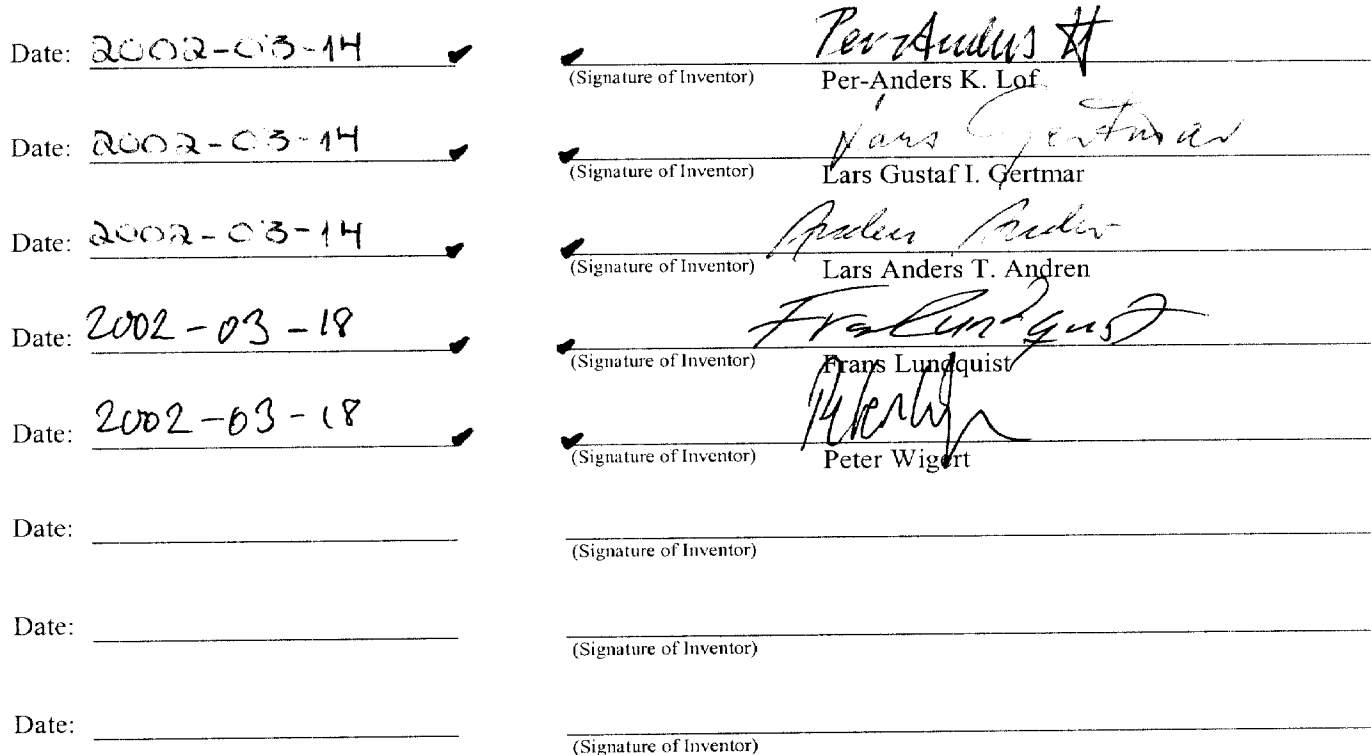 Date: 2002-03-14 Per-Anders
(Signature of Inventor) Per-Anders K. Lof
Date: 2002-03-14 Lars Gertmar
(Signature of Inventor) Lars Gustaf I. Gertmar
Date: 2002-03-14 Anders Andren
(Signature of Inventor) Lars Anders T. Andren
Date: 2002-03-18 Frans Lundquist
(Signature of Inventor) Frans Lundquist
Date: 2002-03-18
(Signature of Inventor) Peter Wigert
Date:
(Signature of Inventor)
Date:
(Signature of Inventor)
Date:
(Signature of Inventor)